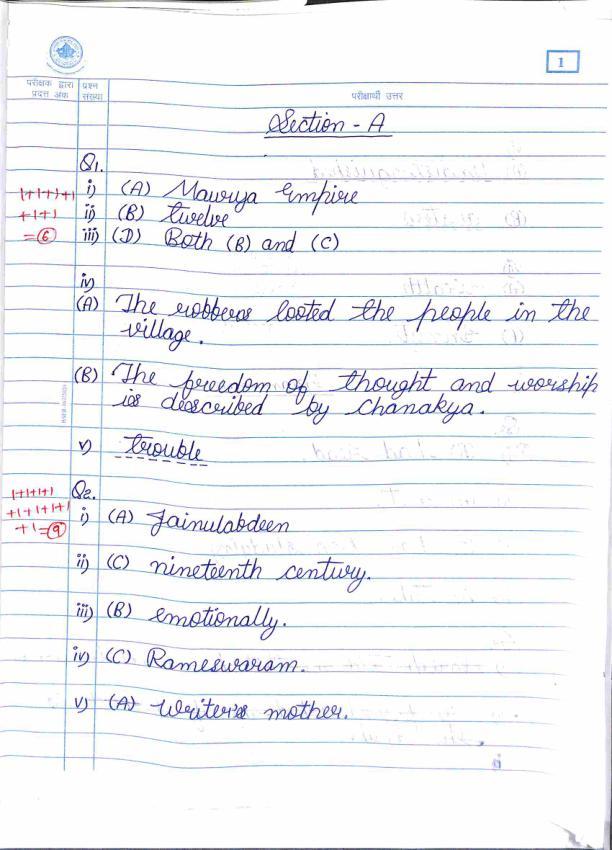 1
परीक्षक द्वारा प्रदत्त अंक
प्रश्न संख्या
परीक्षार्थी उत्तर
Section - A
Q1.
1+1+1+1 i) (A) Maurya Empire
+1+1 ii) (B) twelve
=6 iii) (D) Both (B) and (C)
iv)
(A) The robbers looted the people in the
village.
(B) The freedom of thought and worship
is described by Chanakya.
v) trouble
1+1+1+1 Q2.
+1+1+1+1 i) (A) Jainulabdeen
+1=9
ii) (C) nineteenth century.
iii) (B) emotionally.
iv) (C) Rameswaram.
v) (A) Writer's mother.